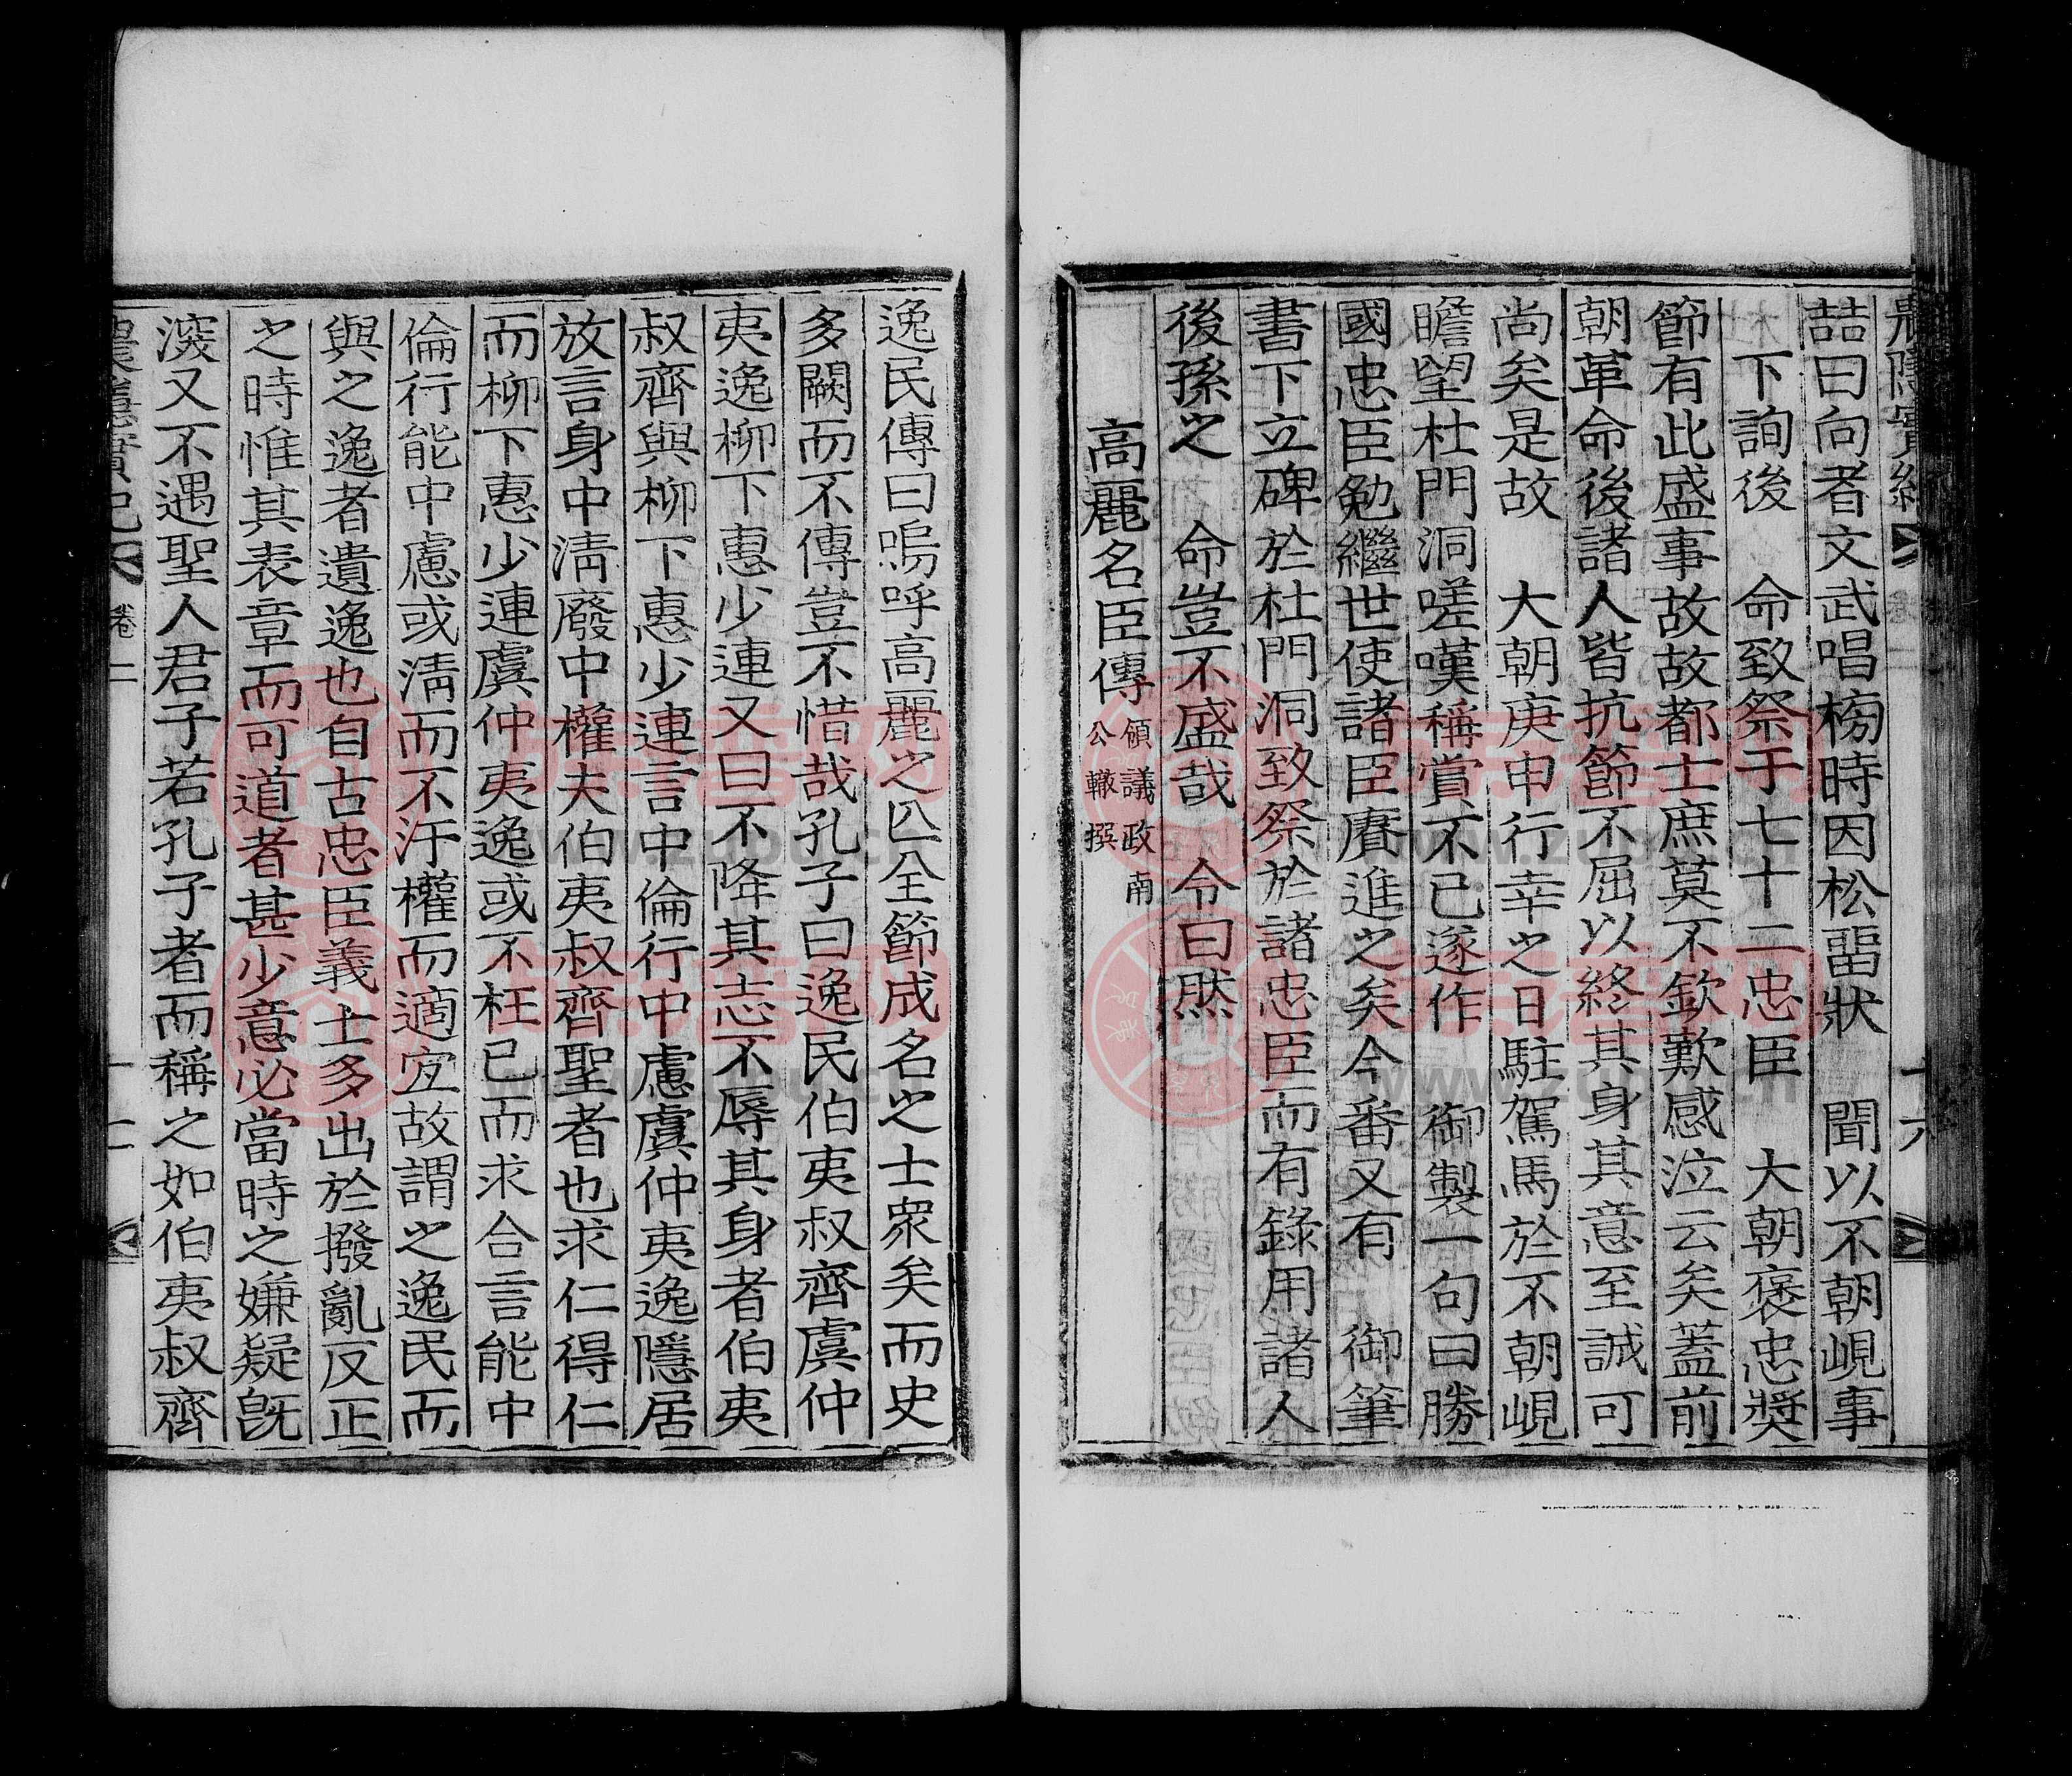 喆曰向者文武唱榜時因松畱狀　聞以不朝峴事
下詢後　命致祭于七十二忠臣　大朝褒忠獎
節有此盛事故故都士庶莫不欽歎感泣云矣蓋前
朝革命後諸人皆抗節不屈以終其身其意至誠可
尚矣是故　大朝庚申行幸之日駐駕馬於不朝峴
瞻望杜門洞嗟嘆稱賞不已遂作　御製一句曰勝
國忠臣勉繼世使諸臣賡進之矣今番又有　御筆
書下立碑於杜門洞致祭於諸忠臣而有錄用諸人
後孫之　命豈不盛哉　令曰然
高麗名臣傳領議政南公轍撰
逸民傳曰嗚呼高麗之亾全節成名之士衆矣而史
多闕而不傳豈不惜哉孔子曰逸民伯夷叔齊虞仲
夷逸柳下惠少連又曰不降其志不辱其身者伯夷
叔齊與柳下惠少連言中倫行中慮虞仲夷逸隱居
放言身中淸廢中權夫伯夷叔齊聖者也求仁得仁
而柳下惠少連虞仲夷逸或不枉己而求合言能中
倫行能中慮或淸而不汙權而適宜故謂之逸民而
與之逸者遺逸也自古忠臣義士多出於撥亂反正
之時惟其表章而可道者甚少意必當時之嫌疑旣
深又不遇聖人君子若孔子者而稱之如伯夷叔齊
農隱實記　卷二